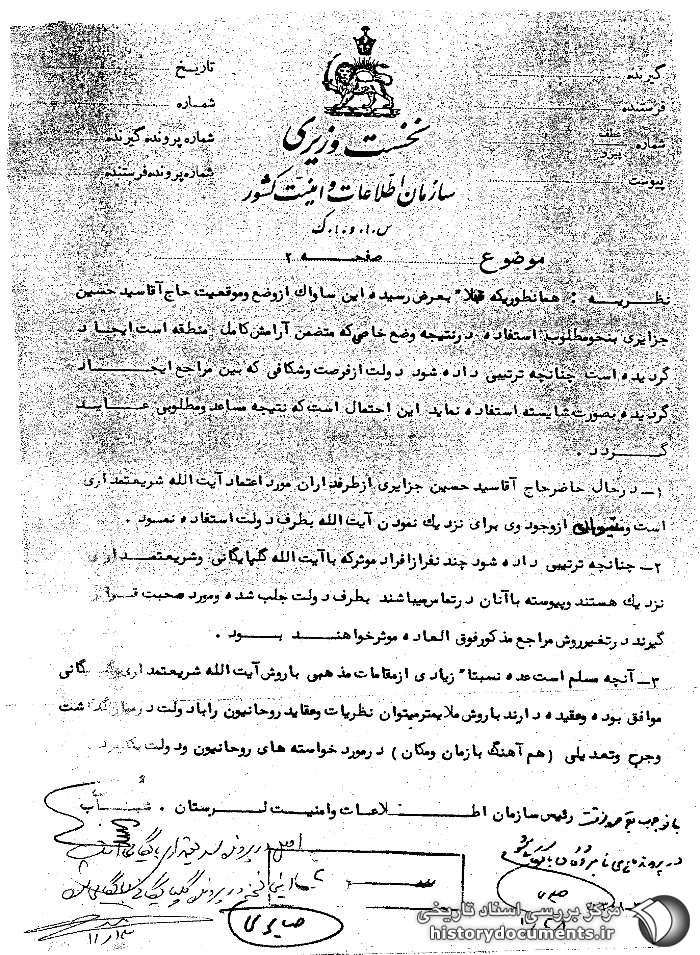 گیرنده
فرستنده
شماره عطف پیرو
پیوست
تاریخ
شماره
شماره پرونده گیرنده
شماره پرونده فرستنده
نخست وزیری
سازمان اطلاعات و امنیت کشور
س.ا.و.ا.ک
موضوع صفحه ۲
نظریه : همانطوریکه قبلا" بعرض رسیده این ساواک از وضع وموقعیت حاج آقاسید حسین
جزایری بنحو مطلوب استفاده درنتیجه وضع خاصی که متضمن آرامش کامل منطقه است ایجاد
گردیده است چنانچه ترتیبی داده شود دولت از فرصت وشکافی که بین مراجع ایجاد
گردیده بصورت شایسته استفاده نماید این احتمال است که نتیجه مساعد ومطلوبی عاید
گردد .
۱- درحال حاضر حاج آقاسید حسین جزایری از طرفداران مورد اعتماد آیت الله شریعتمداری
است و میتوان ازوجود وی برای نزدیک نمودن آیت الله بطرف دولت استفاده نمود .
۲- چنانچه ترتیبی داده شود چند نفر از افراد موثر که با آیت الله گلپایگانی وشریعتمداری
نزدیک هستند وپیوسته باآنان درتماس میباشند بطرف دولت جلب شده ومورد صحبت قرار
گیرند در تغییر روش مراجع مذکور فوق العاده موثر خواهند بود .
۳- آنچه مسلم است عده نسبتا" زیادی ازمقامات مذهبی باروش آیت الله شریعتمداری گلپایگانی
موافق بوده وعقیده دارند باروش ملایمتر میتوان نظریات وعقاید روحانیون را بادولت درمیان گذاشت
وجرح وتعدیلی (هم آهنگ بازمان ومکان) درمورد خواسته های روحانیون ودولت بکار برد
رئیس سازمان اطلاعات وامنیت لرستان . شهناب
اصل در پرونده شریعتمداری بایگانی است
در پرونده گلپایگانی بایگانی شود
صابری
۱۱/۳
مرکز بررسی اسناد تاریخی
historydocuments.ir